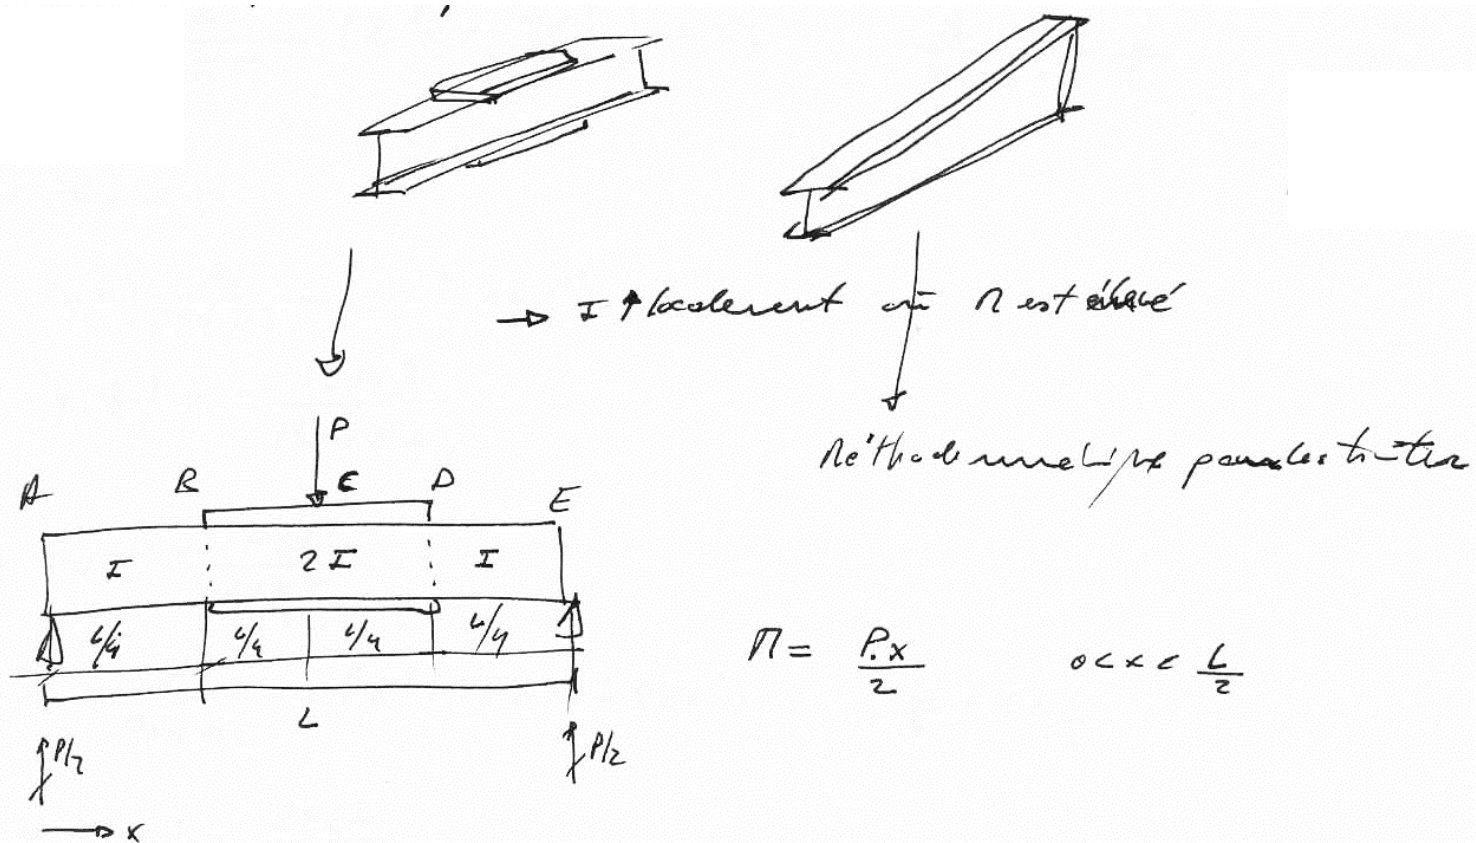 → I ↑ localement où M est élevé
Méthode numérique pour les traiter
P
A B C D E
I 2I I
L/4 L/4 L/4 L/4
L
P/2 P/2
→ x
M = P.x/2 0 < x < L/2